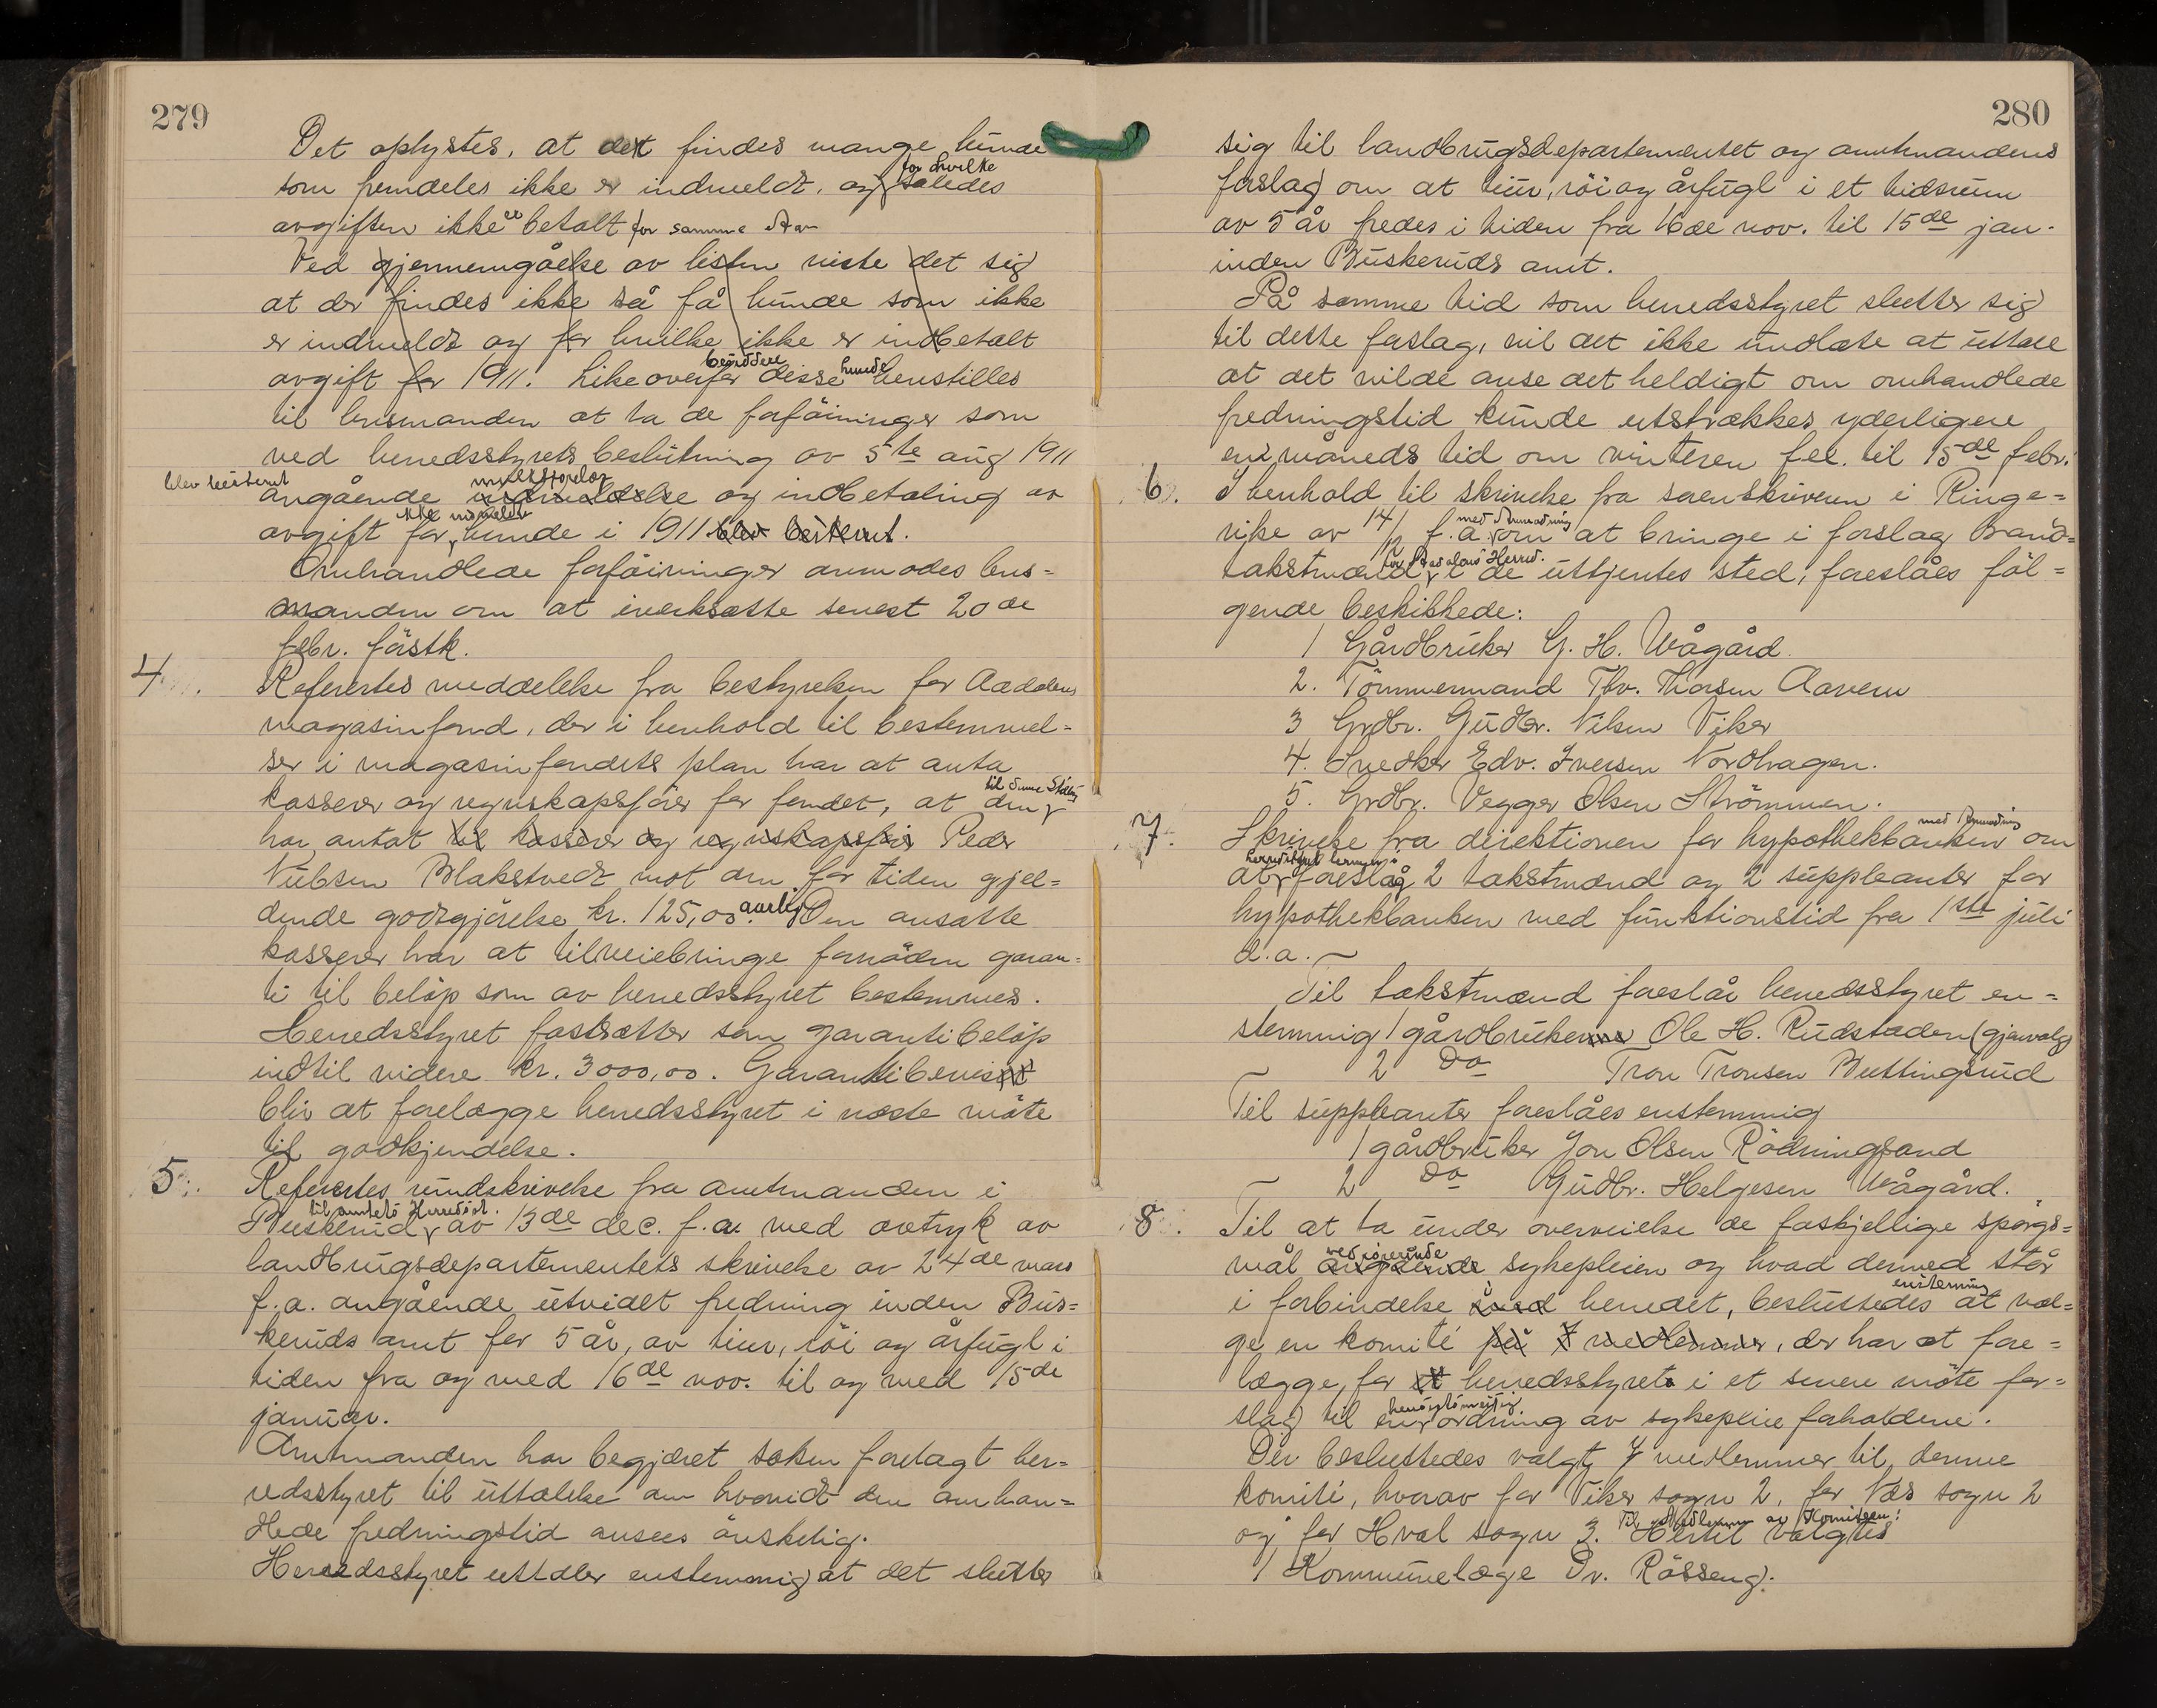 279
Det oplystes, at det findes mange hunde
som fremdeles ikke er indmeldt, og for hvilke således
avgiften ikke er betalt for samme Aar
Ved gjennemgåelse av listen viste det sig
at der findes ikke så få hunde som ikke
er indmeldt og for hvilke ikke er indbetalt
avgift for 1911. Likeoverfor berörte disse hunde henstilles
til lensmanden at ta de forföininger som
ved herredsstyrets beslutning av 5te aug 1911
blev bestemt
angående indmeldelse og indbetaling av
avgift for ikke indmeldte hunde i 1911 blev bestemt.
Omhandlede forföininger anmodes lens-
manden om at iverksætte senest 20de
febr. förstk.
4.
Refertes meddelelse fra bestyrelsen for Aadalens
magasinfond, der i henhold til bestemmel-
ser i magasinfondets plan har at anta
kasserer og regnskapsförer for fondet, at den til denne Stilling
har antat til kasserer og regnskapsförer Peder
Nilsen Blakstvedt mot den for tiden gjel-
dende godtgjörelse kr. 125,00 aarlig. Den ansatte
kasserer har at tilveiebringe fornöden garan-
ti til belöp som av herredsstyret bestemmes.
Herredsstyret fastsætter som garantibelöp
indtil videre kr. 3000,00. Garantibeviset
blir at forelægge herredsstyret i næste möte
til godkjendelse.
5.
Refertes rundskrivelse fra amtmanden i
Buskerud til amtets Herredsst. av 13de dec. f.a. med avtryk av
landbrugsdepartementets skrivelse av 24de mars
f.a. angående utvidet fredning inden Bus-
keruds amt for 5 år, av tiur, röi og årfugl i
tiden fra og med 16de nov. til og med 15de
januar.
Amtmanden har begjæret saken foretagt her-
redsstyret til uttalelse om hvorvidt den omhan-
dlede fredningstid ansees önskelig.
Herredsstyret uttaler enstemmig at det slutter
280
sig til landbrugsdepartementet og amtmandens
forslag om at tiur, röi og årfugl i et tidsrum
av 5 år fredes i tiden fra 16de nov. til 15de jan.
inden Buskeruds amt.
På samme tid som herredsstyret slutter sig
til dette forslag, vil det ikke undlate at uttale
at det vilde anse det heldigt om omhandlede
fredningstid kunde utstrækkes yderligere
en måneds tid om vinteren f.ex. til 15de febr.
6.
I henhold til skrivelse fra sorenskriveren i Ringe-
rike av 14/12 f.a. med Anmodning om at bringe i forslag Brand-
takstmænd for Aadalens Herred i de uttjentes sted, foreslåes föl-
gende beskikkede:
1 Gårdbruker G. H. Wågård.
2. Tömmermand Thv. Thorsen Aaveren
3 Grdbr. Gudbr. Nilsen Viker
4. Snedker Edv. Iversen Nordhagen.
5. Grdbr. Vegger Olsen Strömmen.
7.
Skrivelse fra direktionen for hypothekbanken med Anmodning om
at herredsstyret foreslå 2 takstmænd og 2 suppleanter for
hypothekbanken med funktionstid fra 1ste juli
d.a.
Til takstmænd foreslår herredsstyret en-
stemmig 1 gårdbruker Ole H. Rudstaden (gjenvalg)
2 Do Tron Tronsen Buttingsrud
Til suppleanter foreslåes enstemmig
1 gårdbruker Jon Olsen Rödningsand
2 Do Gudbr. Helgesen Wågård.
8.
Til at ta under overveielse de forskjellige spörgs-
mål vedrörende angående sykepleien og hvad dermed står
i forbindelse i herredet, besluttedes enstemmig at væl-
ge en komité på 7 medlemmer, der har at fore-
lægge for herredsstyret i et senere möte for-
slag til en hensigtsmæssig ordning av sykepleieforholdene.
Der besluttedes valgt 7 medlemmer til denne
komité, hvorav for Viker sogn 2, for Næs sogn 2
og for Hval sogn 3. Til Medlemmer av Komiteen: Hertil valgtes
1 Kommunelæge Dr. Rösseng.